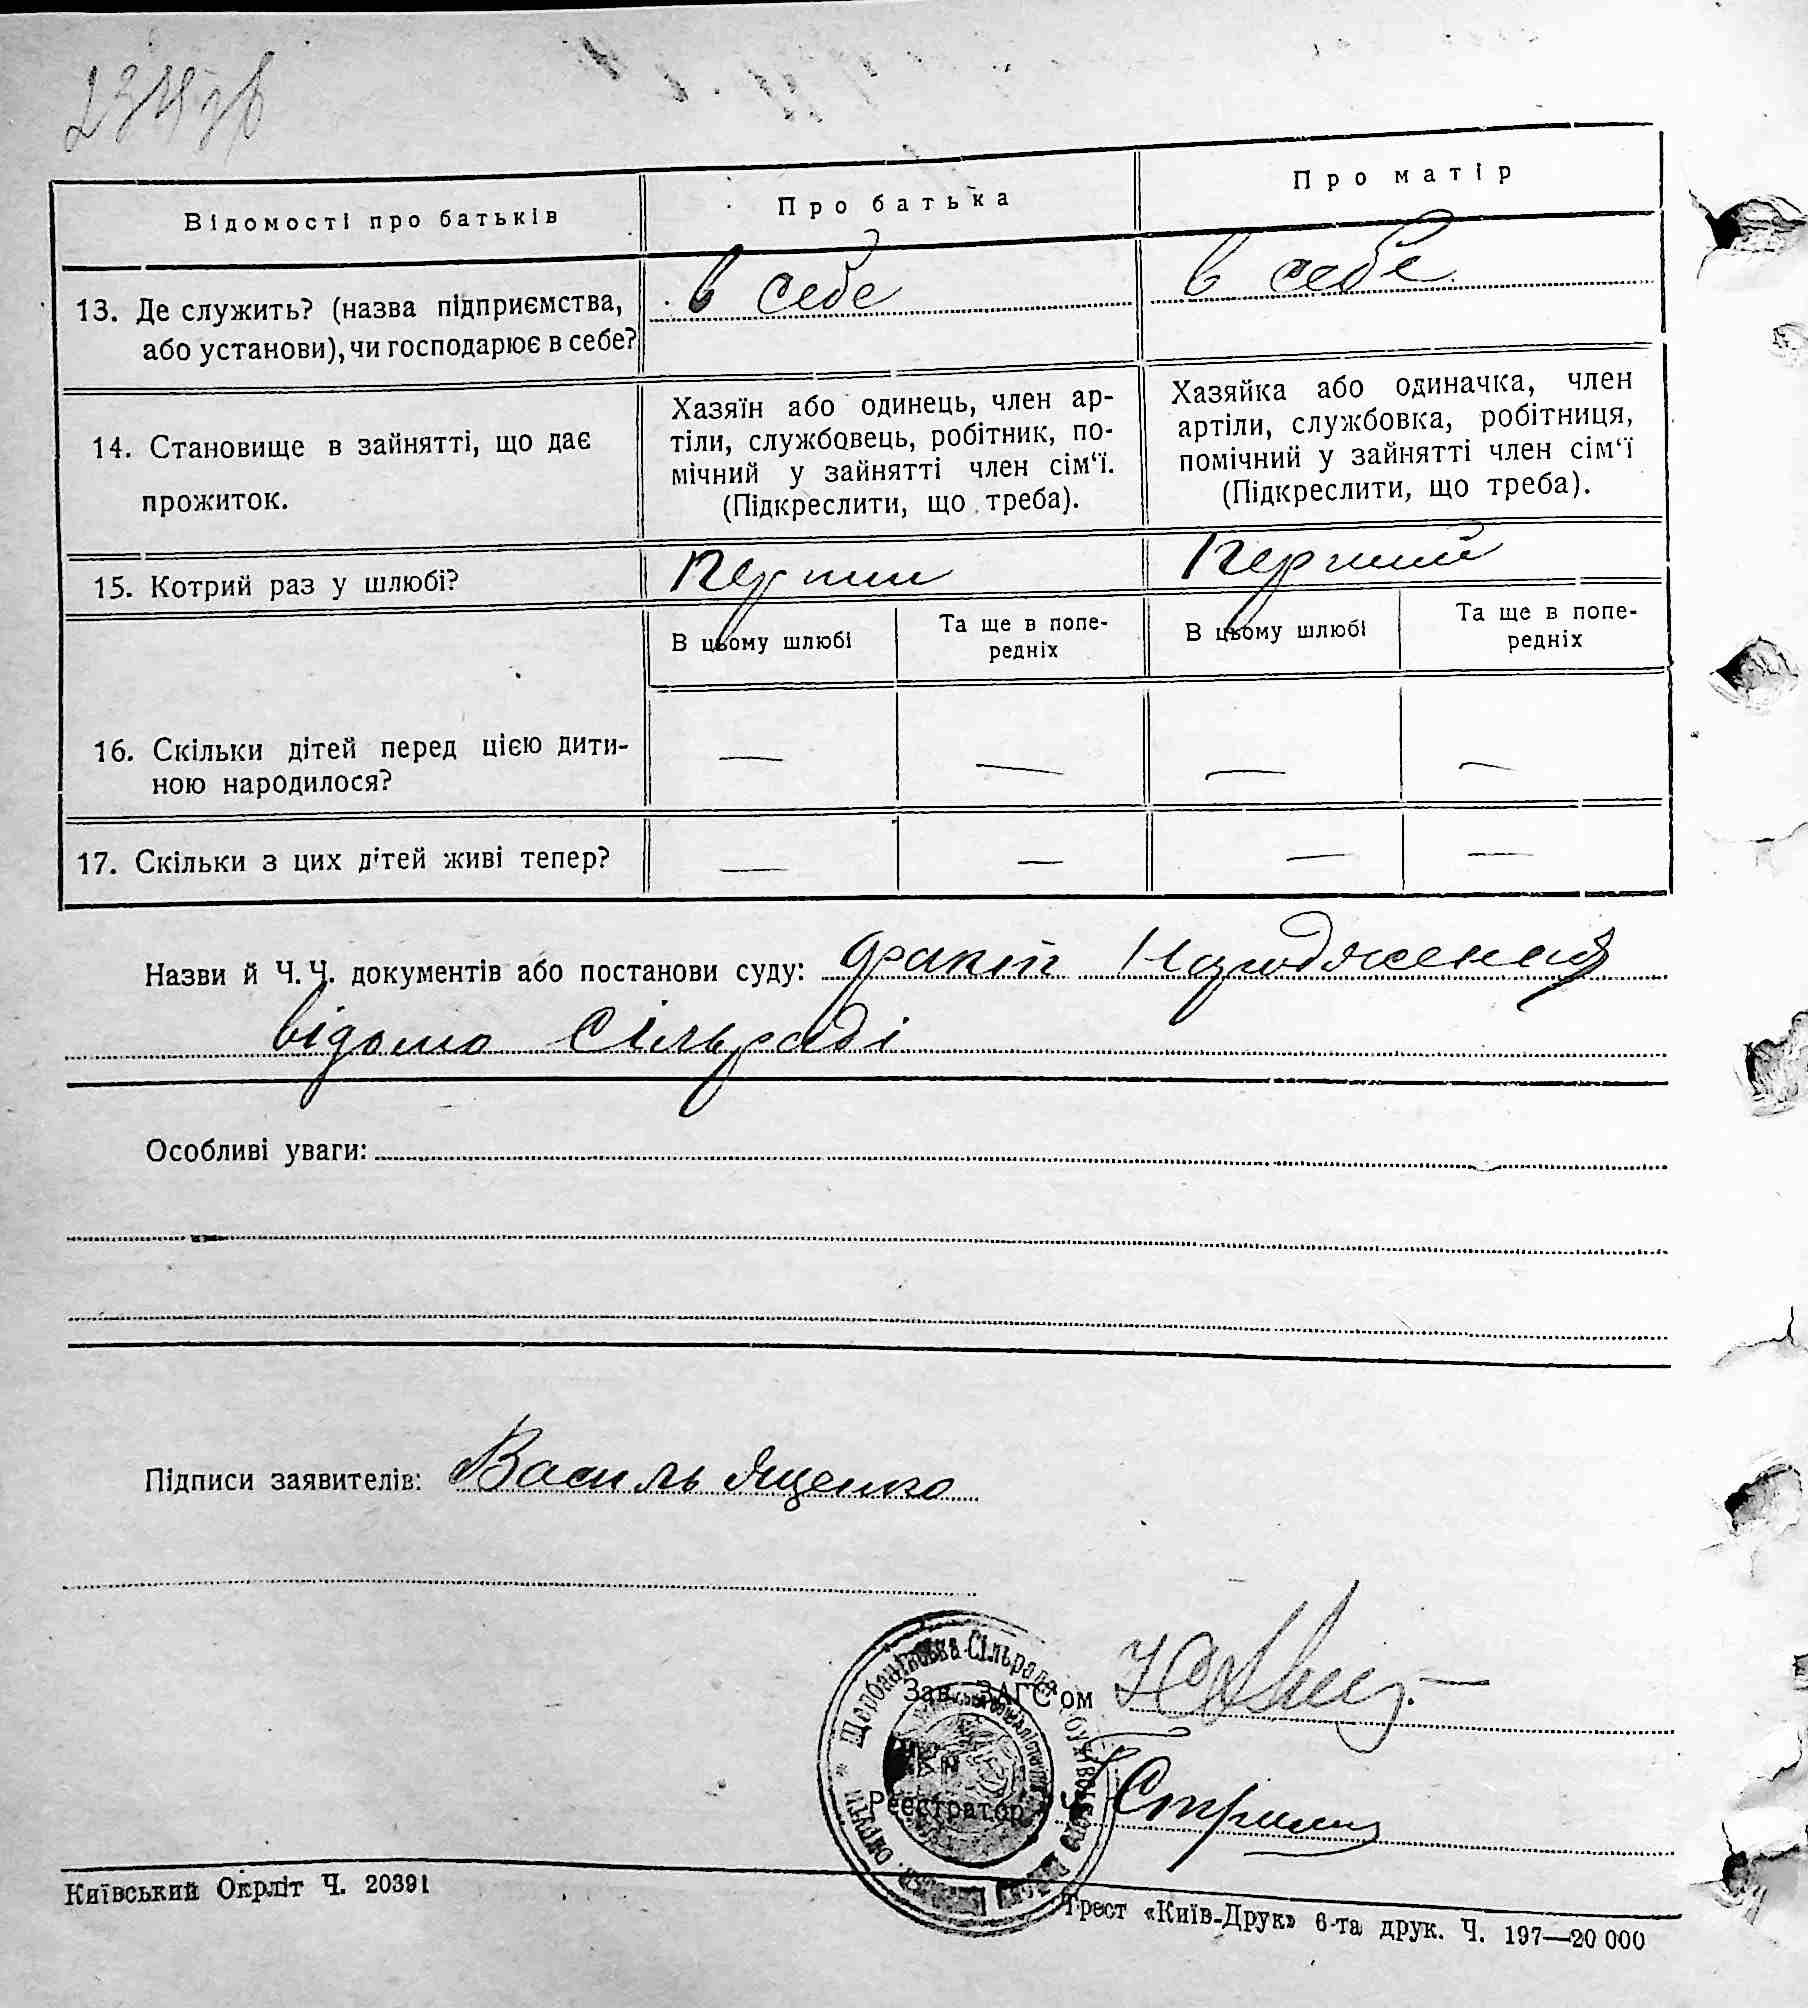 234зв
Відомості про батьків
Про батька
Про матір
13. Де служить? (назва підприємства,
або установи), чи господарює в себе?
в себе
в себе
14. Становище в зайнятті, що дає
прожиток.
Хазяїн або одинець, член ар-
тіли, службовець, робітник, по-
мічний у зайнятті член сім‘ї.
(Підкреслити, що треба).
Хазяйка або одиначка, член
артіли, службовка, робітниця,
помічний у зайнятті член сім‘ї
(Підкреслити, що треба).
15. Котрий раз у шлюбі?
Перший
Перший
В цьому шлюбі
Та ще в попе-
редніх
В цьому шлюбі
Та ще в попе-
редніх
16. Скільки дітей перед цією дити-
ною народилося?
— — — —
17. Скільки з цих дітей живі тепер?
— — — —
Назви й Ч.Ч. документів або постанови суду: факт Народження
відомо Сільраді
Особливі уваги:
Підписи заявителів: Василь Ященко
Сільрада
Зав. ЗАГС'ом
Реєстратор
округи
Київський Окрліт Ч. 20391
Трест «Київ-Друк» 6-та друк. Ч. 197—20 000